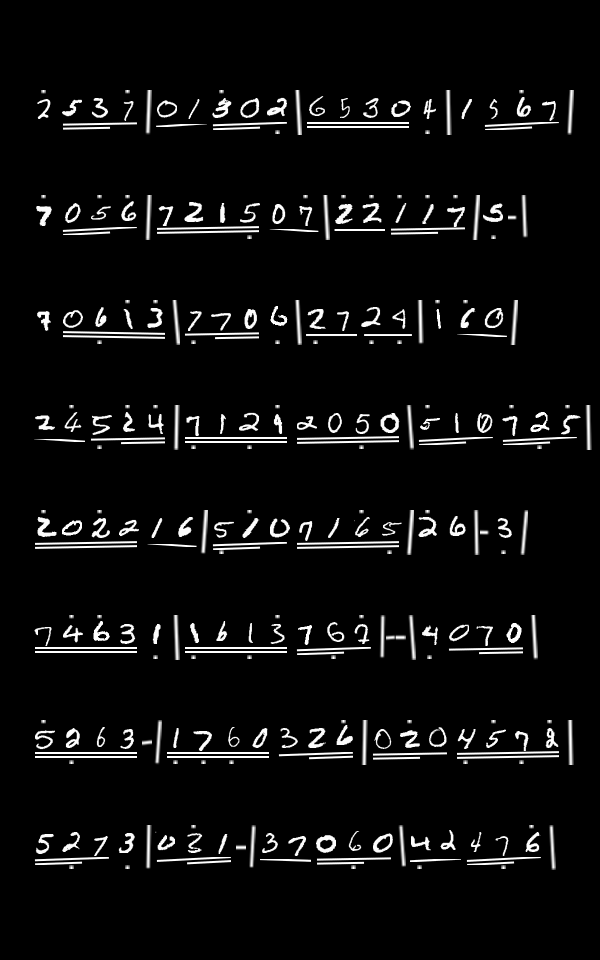 2 5 3 7 | 0 1 3 0 2 | 6 5 3 0 4 | 1 5 6 7 |
7 0 5 6 | 7 2 1 5 0 7 | 2 2 1 1 7 | 5 - |
7 0 6 1 3 | 7 7 0 6 | 2 7 2 4 | 1 6 0 |
2 4 5 2 4 | 7 1 2 1 2 0 5 0 | 5 1 0 7 2 5 |
2 0 2 2 1 6 | 5 1 0 7 1 6 5 | 2 6 | - 3 |
7 4 6 3 1 | 1 6 1 3 7 6 2 | - - | 4 0 7 0 |
5 2 6 3 - | 1 7 6 0 3 2 6 | 0 2 0 4 5 7 2 |
5 2 7 3 | 0 3 1 - | 3 7 0 6 0 | 4 2 4 7 6 |